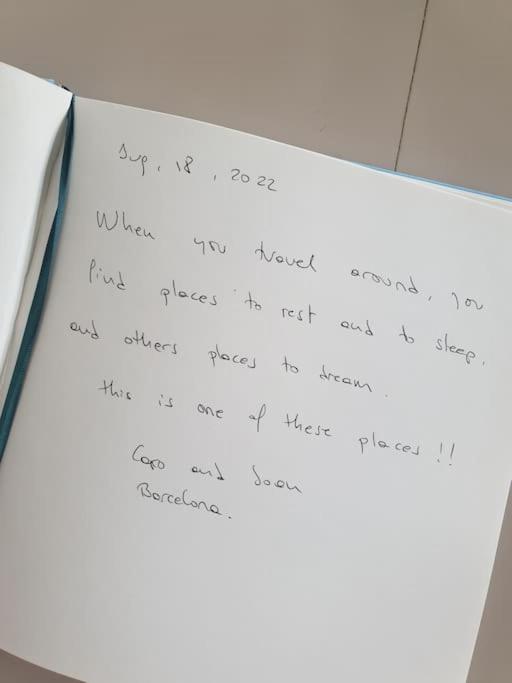 Sup, 18, 2022
When you travel around, you
find places to rest and to sleep,
and others places to dream.
this is one of these places!!
Caro and Joan
Barcelona.